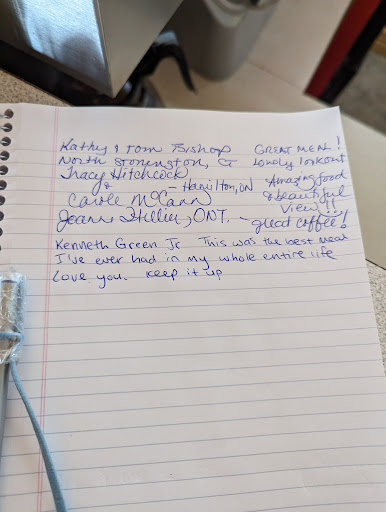 Kathy & Tom Bishop GREAT MEAL!
North Stonington, CT Lovely lookout
Tracy Hitchcock
& - Hamilton, ON Amazing food
Carole McCann & beautiful
View!!
Jeanne Hillier, ONT. - great coffee!
Kenneth Green Jr This was the best meal
I've ever had in my whole entire life
love you. Keep it up